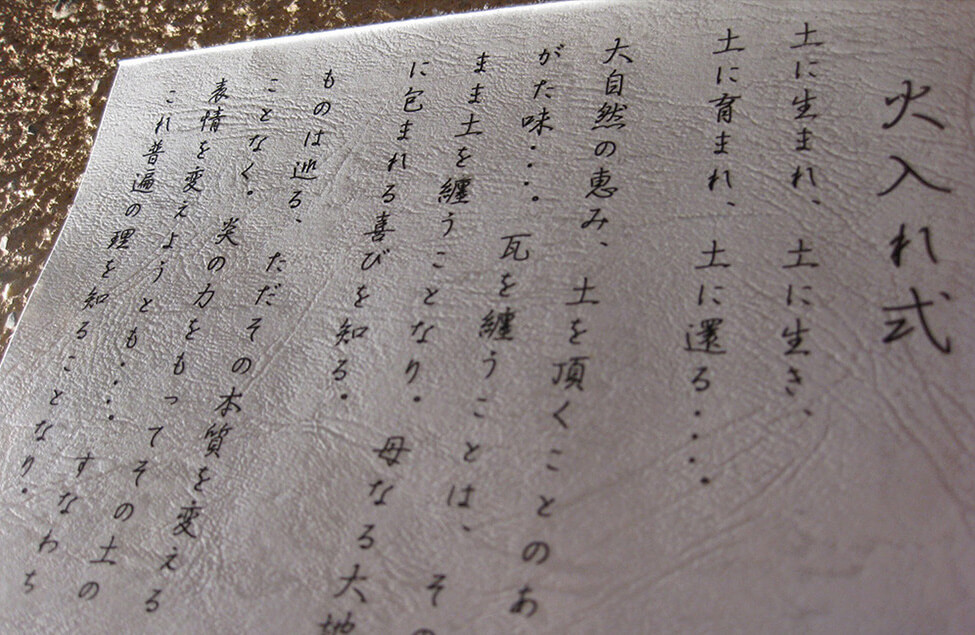 火入れ式
土に生まれ、土に生き、
土に育まれ、土に還る・・・・
大自然の恵み、土を頂くことのあ
がた味・・・。瓦を纏うことは、その
まま土を纏うことなり。母なる大地
に包まれる喜びを知る。
ものは巡る、ただその本質を変える
ことなく。炎の力をもってその土の
表情を変えようとも・・・・すなわち
これ普遍の理を知ることなり。